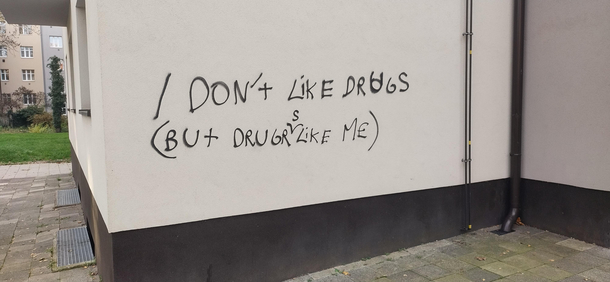 I DON't LiKE DRUGS
(BUt DRUGRS LiKE ME)